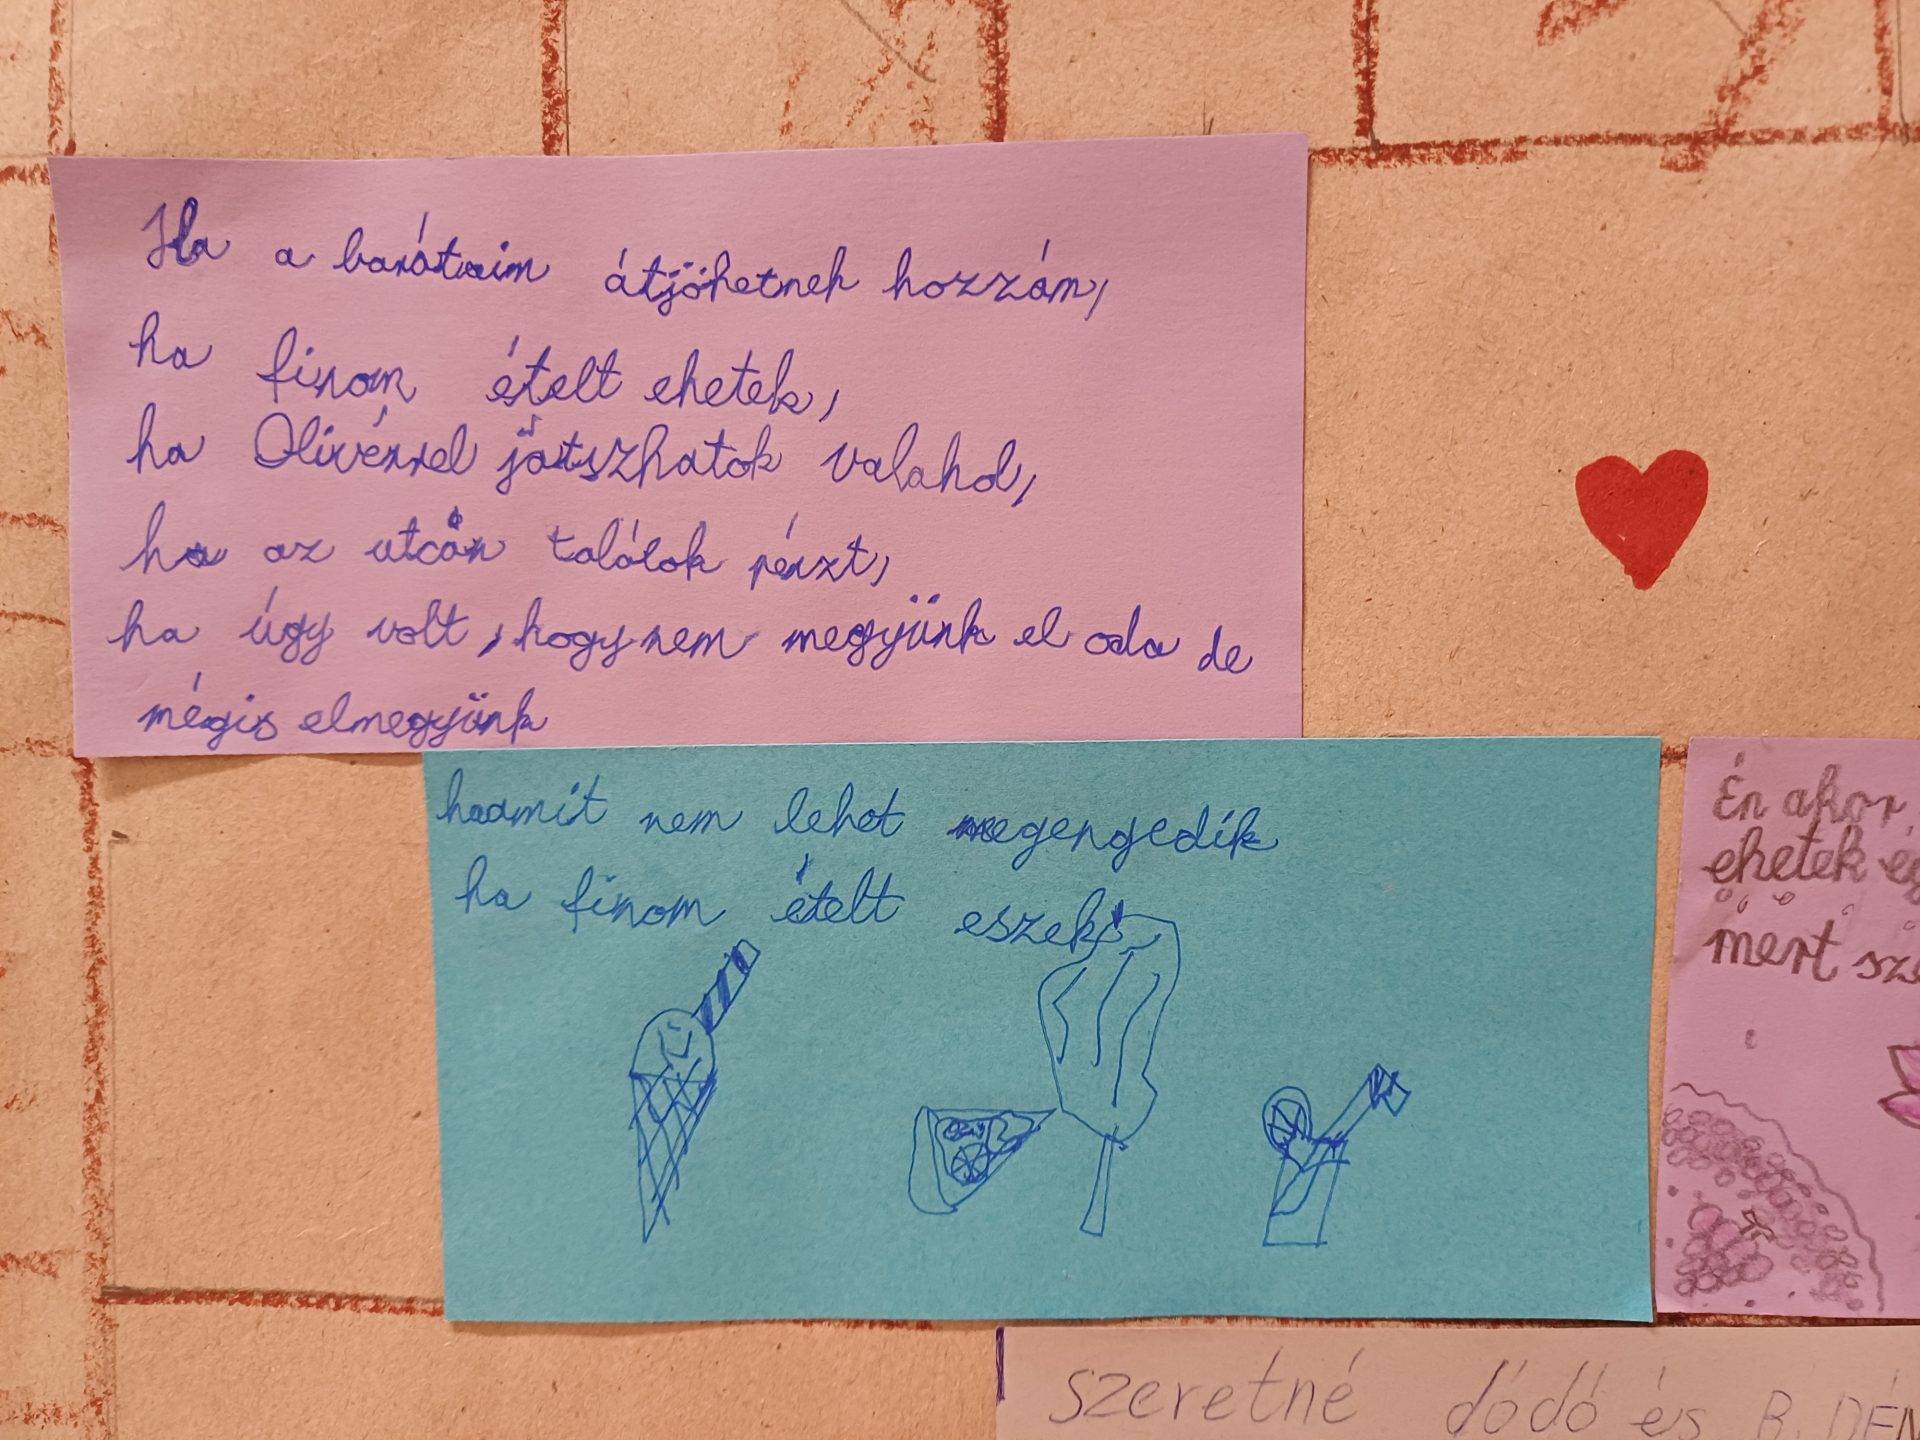 Ha a barátaim átjöhetnek hozzám,
ha finom ételt ehetek,
ha Olivérrel játszhatok valahol,
ha az utcán találok pénzt,
ha úgy volt, hogy nem megyünk el oda de
mégis elmegyünk
haamit nem lehet megengedik
ha finom ételt eszek
Én akor
ehetek
mert
szeretné dódó és B.